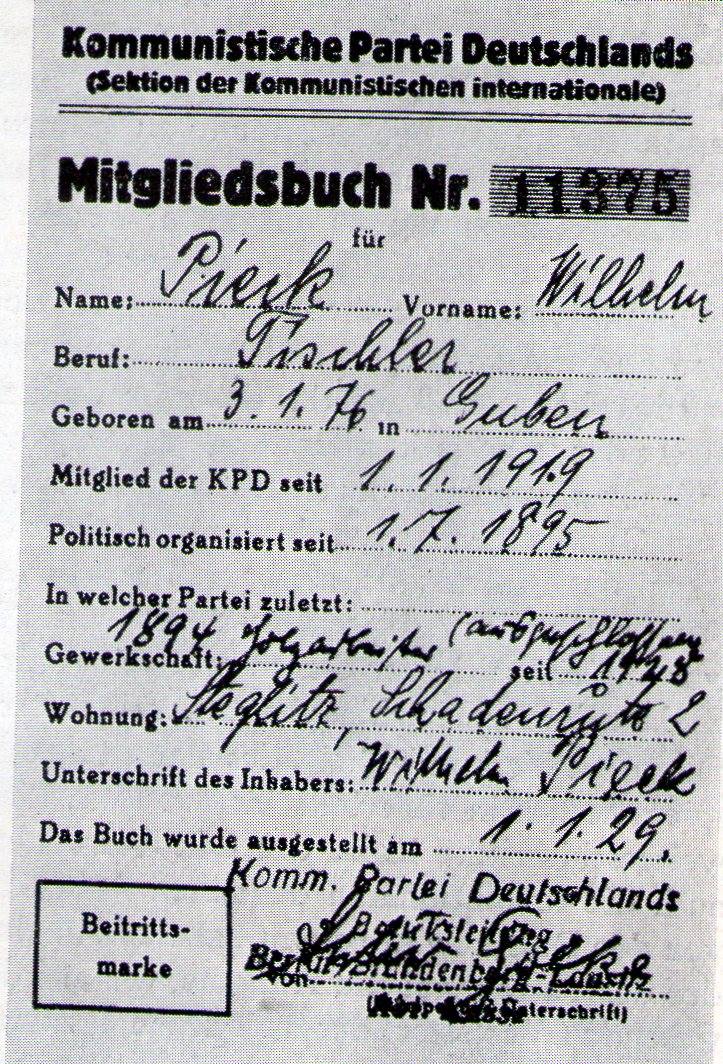 Kommunistische Partei Deutschlands
(Sektion der Kommunistischen internationale)
Mitgliedsbuch Nr. 11375
für
Name: Pieck Vorname: Wilhelm
Beruf: Tischler
Geboren am 3. 1. 76 in Guben
Mitglied der KPD seit 1. 1. 1919
Politisch organisiert seit 1. 7. 1895
In welcher Partei zuletzt:
Gewerkschaft: 1894 Holzarbeiter (ausgeschlossen seit
Wohnung: Steglitz, Schadenrute 2
Unterschrift des Inhabers: Wilhelm Pieck
Das Buch wurde ausgestellt am 1. 1. 29.
Komm. Partei Deutschlands
Bezirksleitung
Berlin-Brandenberg-Lausitz
Beitritts-
marke
Unterschrift)